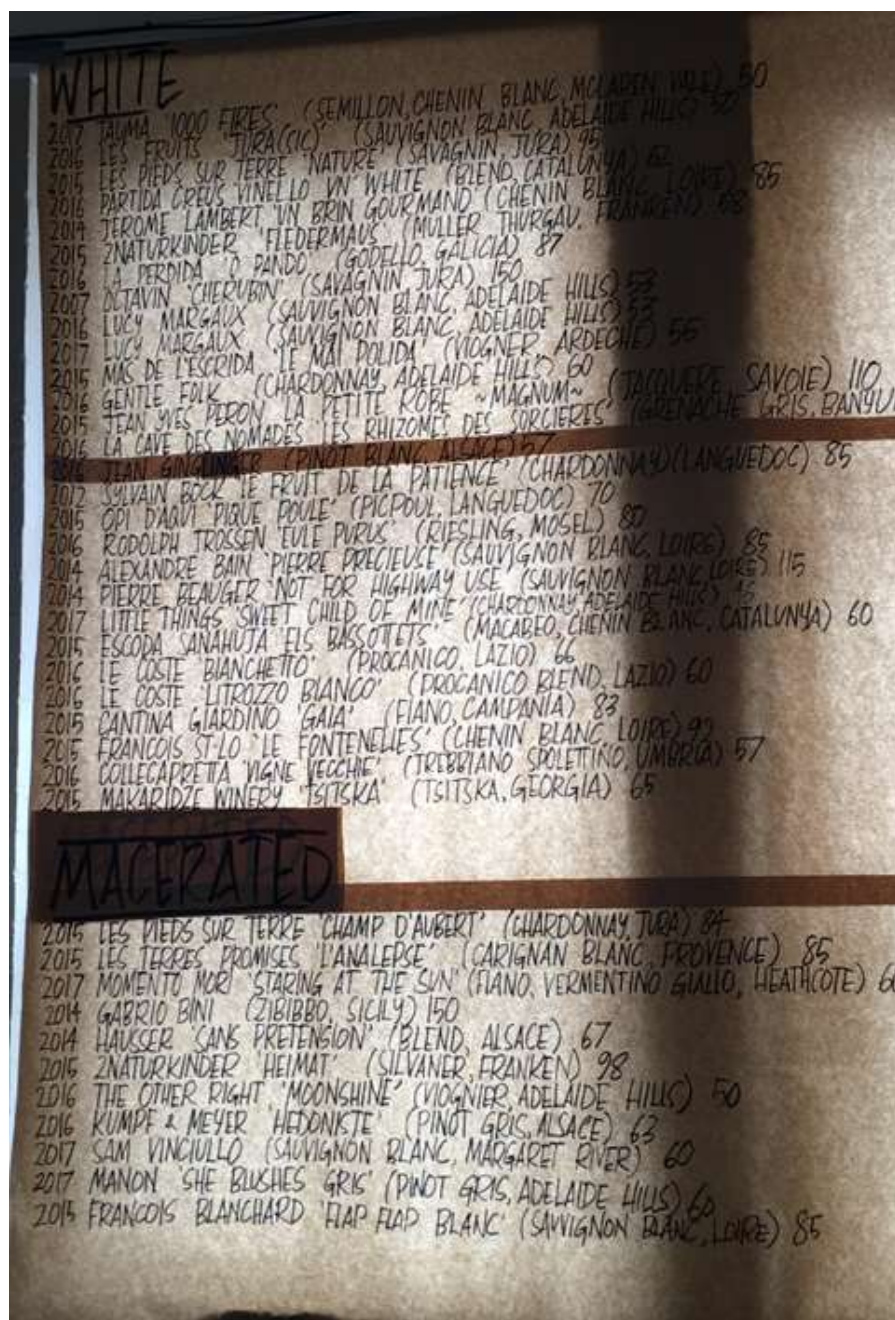 WHITE
2017 TAUMA '1000 FIRES' (SEMILLON, CHENIN BLANC, MCLAREN VALE) 50
2016 LES FRUITS 'JURA(SIC)' (SAUVIGNON BLANC, ADELAIDE HILLS) 50
2015 LES PIEDS SUR TERRE 'NATURE' (SAVAGNIN, JURA) 95
2016 PARTIDA CREUS VINELLO VN WHITE (BLEND, CATALUNYA) 62
2014 JEROME LAMBERT 'UN BRIN GOURMAND' (CHENIN BLANC, LOIRE) 85
2015 2NATURKINDER 'FLEDERMAUS' (MULLER THURGAU, FRANKEN) 58
2016 LA PERDIDA 'O PANDO' (GODELLO, GALICIA) 87
2007 OCTAVIN 'CHERUBIN' (SAVAGNIN, JURA) 150
2016 LUCY MARGAUX (SAUVIGNON BLANC, ADELAIDE HILLS) 53
2017 LUCY MARGAUX (SAUVIGNON BLANC, ADELAIDE HILLS) 53
2015 MAS DE L'ESCRIDA 'LE MAI POLIDA' (VIOGNER, ARDECHE) 56
2016 GENTLE FOLK (CHARDONNAY, ADELAIDE HILLS) 60
2015 JEAN YVES PERON 'LA PETITE ROBE' ~MAGNUM~ (JACQUERE, SAVOIE) 110
2016 LA CAVE DES NOMADES 'LES RHIZOMES DES SORCIERES' (GRENACHE GRIS, BANYU
2016 JEAN GINGLINGER (PINOT BLANC, ALSACE) 57
2012 SYLVAIN BOCK 'LE FRUIT DE LA PATIENCE' (CHARDONNAY)(LANGUEDOC) 85
2015 OPI D'AQUI 'PIQUE POULE' (PICPOUL, LANGUEDOC) 70
2016 RODOLPH TROSSEN 'EULE PURUS' (RIESLING, MOSEL) 80
2014 ALEXANDRE BAIN 'PIERRE PRECIEUSE' (SAUVIGNON BLANC, LOIRE) 85
2014 PIERRE BEAUGER 'NOT FOR HIGHWAY USE' (SAUVIGNON BLANC, LOIRE) 115
2017 LITTLE THINGS 'SWEET CHILD OF MINE' (CHARDONNAY, ADELAIDE HILLS)
2015 ESCODA SANAHUJA 'ELS BASSOTTETS' (MACABEO, CHENIN BLANC, CATALUNYA) 60
2016 LE COSTE 'BIANCHETTO' (PROCANICO, LAZIO) 66
2016 LE COSTE 'LITROZZO BIANCO' (PROCANICO BLEND, LAZIO) 60
2015 CANTINA GIARDINO 'GAIA' (FIANO, CAMPANIA) 83
2015 FRANCOIS ST-LO 'LE FONTENELIES' (CHENIN BLANC, LOIRE) 92
2016 COLLECAPRETTA 'VIGNE VECCHIE' (TREBBIANO SPOLETTINO, UMBRIA) 57
2015 MAKARIDZE WINERY 'TSITSKA' (TSITSKA, GEORGIA) 65
MACERATED
2015 LES PIEDS SUR TERRE 'CHAMP D'AUBERT' (CHARDONNAY, JURA) 84
2015 LES TERRES PROMISES 'L'ANALEPSE' (CARIGNAN BLANC, PROVENCE) 85
2017 MOMENTO MORI 'STARING AT THE SUN' (FIANO, VERMENTINO GIALLO, HEATHCOTE)
2014 GABRIO BINI (ZIBIBBO, SICILY) 150
2014 HAUSSER 'SANS PRETENSION' (BLEND, ALSACE) 67
2015 2NATURKINDER 'HEIMAT' (SILVANER, FRANKEN) 98
2016 THE OTHER RIGHT 'MOONSHINE' (VIOGNIER, ADELAIDE HILLS) 50
2016 KUMPF & MEYER 'HEDONISTE' (PINOT GRIS, ALSACE) 63
2017 SAM VINCIULLO (SAUVIGNON BLANC, MARGARET RIVER) 60
2017 MANON 'SHE BLUSHES GRIS' (PINOT GRIS, ADELAIDE HILLS) 60
2015 FRANCOIS BLANCHARD 'FLAP FLAP BLANC' (SAUVIGNON BLANC, LOIRE) 85